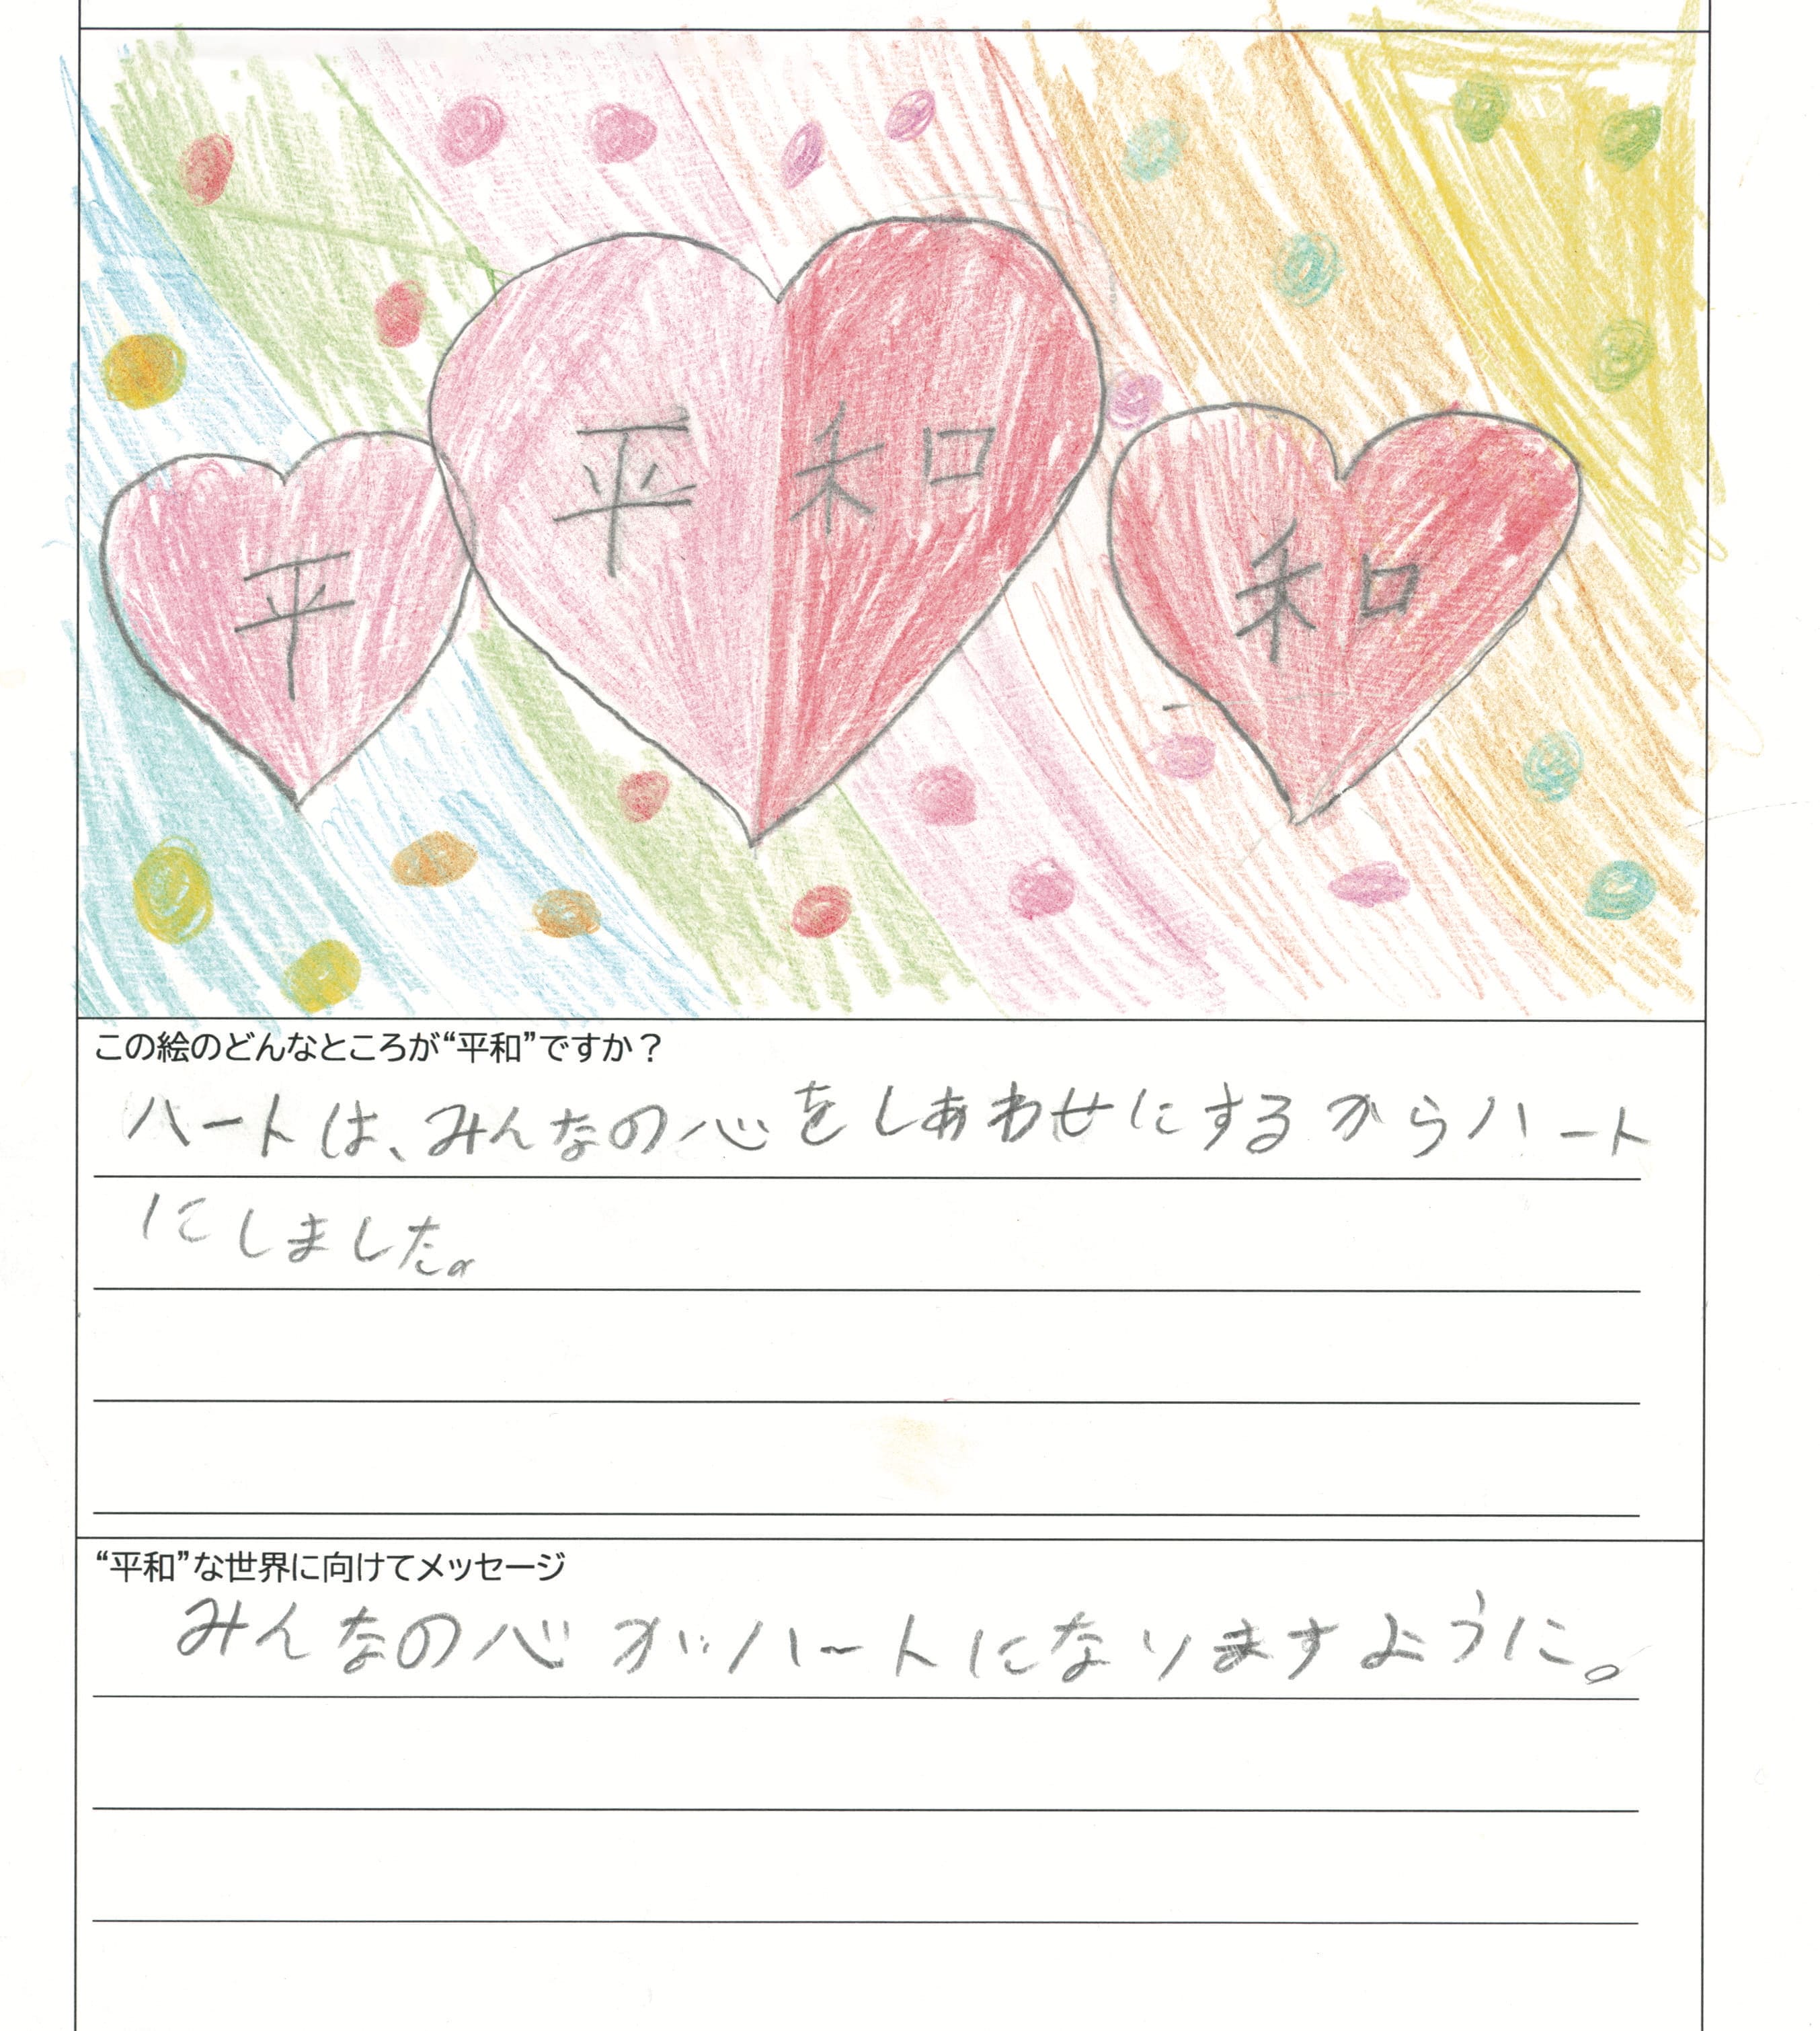 平
平和
和
この絵のどんなところが“平和”ですか？
ハートは、みんなの心をしあわせにするからハート
にしました。
“平和”な世界に向けてメッセージ
みんなの心がハートになりますように。